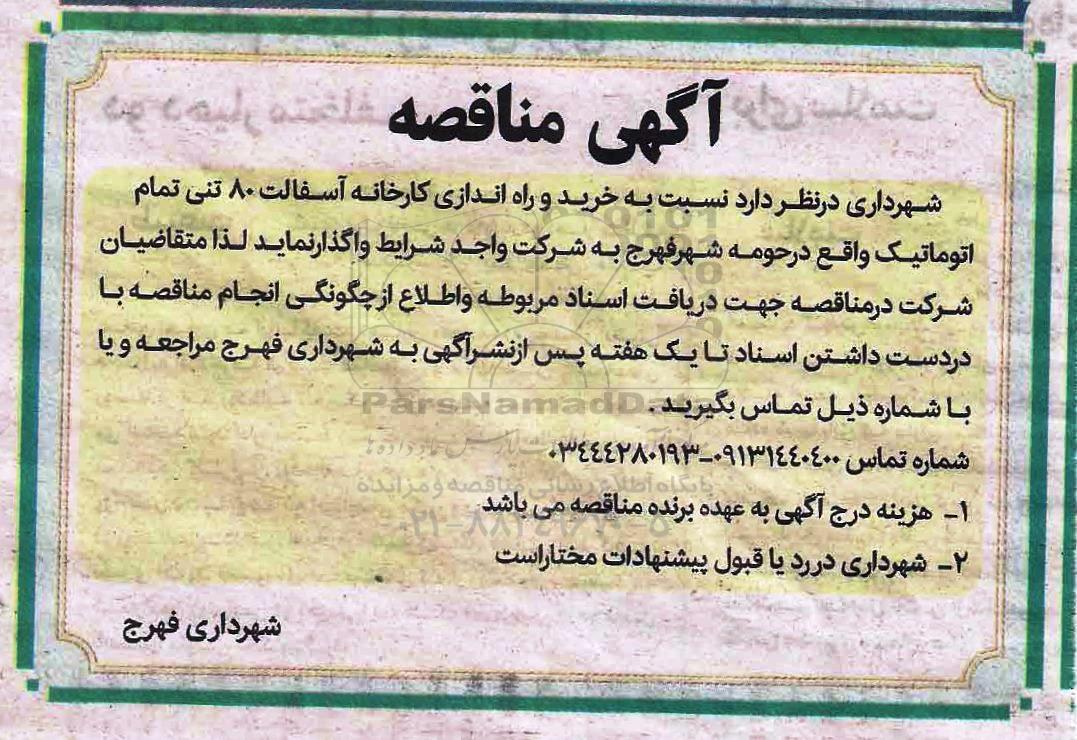 آگهی مناقصه
شهرداری درنظر دارد نسبت به خرید و راه اندازی کارخانه آسفالت ۸۰ تنی تمام
اتوماتیک واقع درحومه شهرفهرج به شرکت واجد شرایط واگذارنماید لذا متقاضیان
شرکت درمناقصه جهت دریافت اسناد مربوطه واطلاع ازچگونگی انجام مناقصه با
دردست داشتن اسناد تا یک هفته پس ازنشرآگهی به شهرداری فهرج مراجعه و یا
با شماره ذیل تماس بگیرید .
ParsNamadData
شماره تماس ۰۹۱۳۱۴۴۰۴۰۰-۰۳۴۴۴۲۸۰۱۹۳
پایگاه اطلاع رسانی مناقصه و مزایده
۱- هزینه درج آگهی به عهده برنده مناقصه می باشد
۲- شهرداری دررد یا قبول پیشنهادات مختاراست
شهرداری فهرج